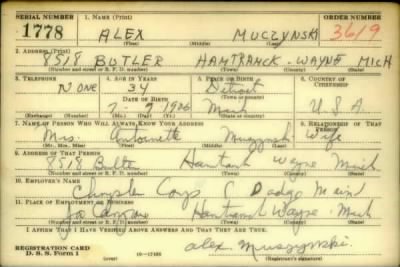 SERIAL NUMBER 1. NAME (Print) ORDER NUMBER
1778 ALEX MUCZYNSKI 3619
(First) (Middle) (Last)
2. ADDRESS (Print)
8518 BUTLER HAMTRAMCK - WAYNE MICH
(Number and street or R. F. D. number) (Town) (County) (State)
3. TELEPHONE 4. AGE IN YEARS 5. PLACE OF BIRTH 6. COUNTRY OF CITIZENSHIP
NONE 34 Detroit
DATE OF BIRTH (Town or county)
7-7-1906 Mich U S A
(Exchange) (Number) (Mo.) (Day) (Yr.) (State or country)
7. NAME OF PERSON WHO WILL ALWAYS KNOW YOUR ADDRESS 8. RELATIONSHIP OF THAT PERSON
Mrs. Antoinette Muczynski Wife
(Mr., Mrs., Miss) (First) (Middle) (Last)
9. ADDRESS OF THAT PERSON
8518 Wayne Mich
(Number and street or R. F. D. number) (Town) (County) (State)
10. EMPLOYER'S NAME
Chrysler Corp ( Dodge Main
11. PLACE OF EMPLOYMENT OR BUSINESS
Jos Campau Wayne Mich
(Number and street or R. F. D. number) (Town) (County) (State)
I AFFIRM THAT I HAVE VERIFIED ABOVE ANSWERS AND THAT THEY ARE TRUE.
REGISTRATION CARD
D. S. S. Form 1 (over) alex Muszynski.